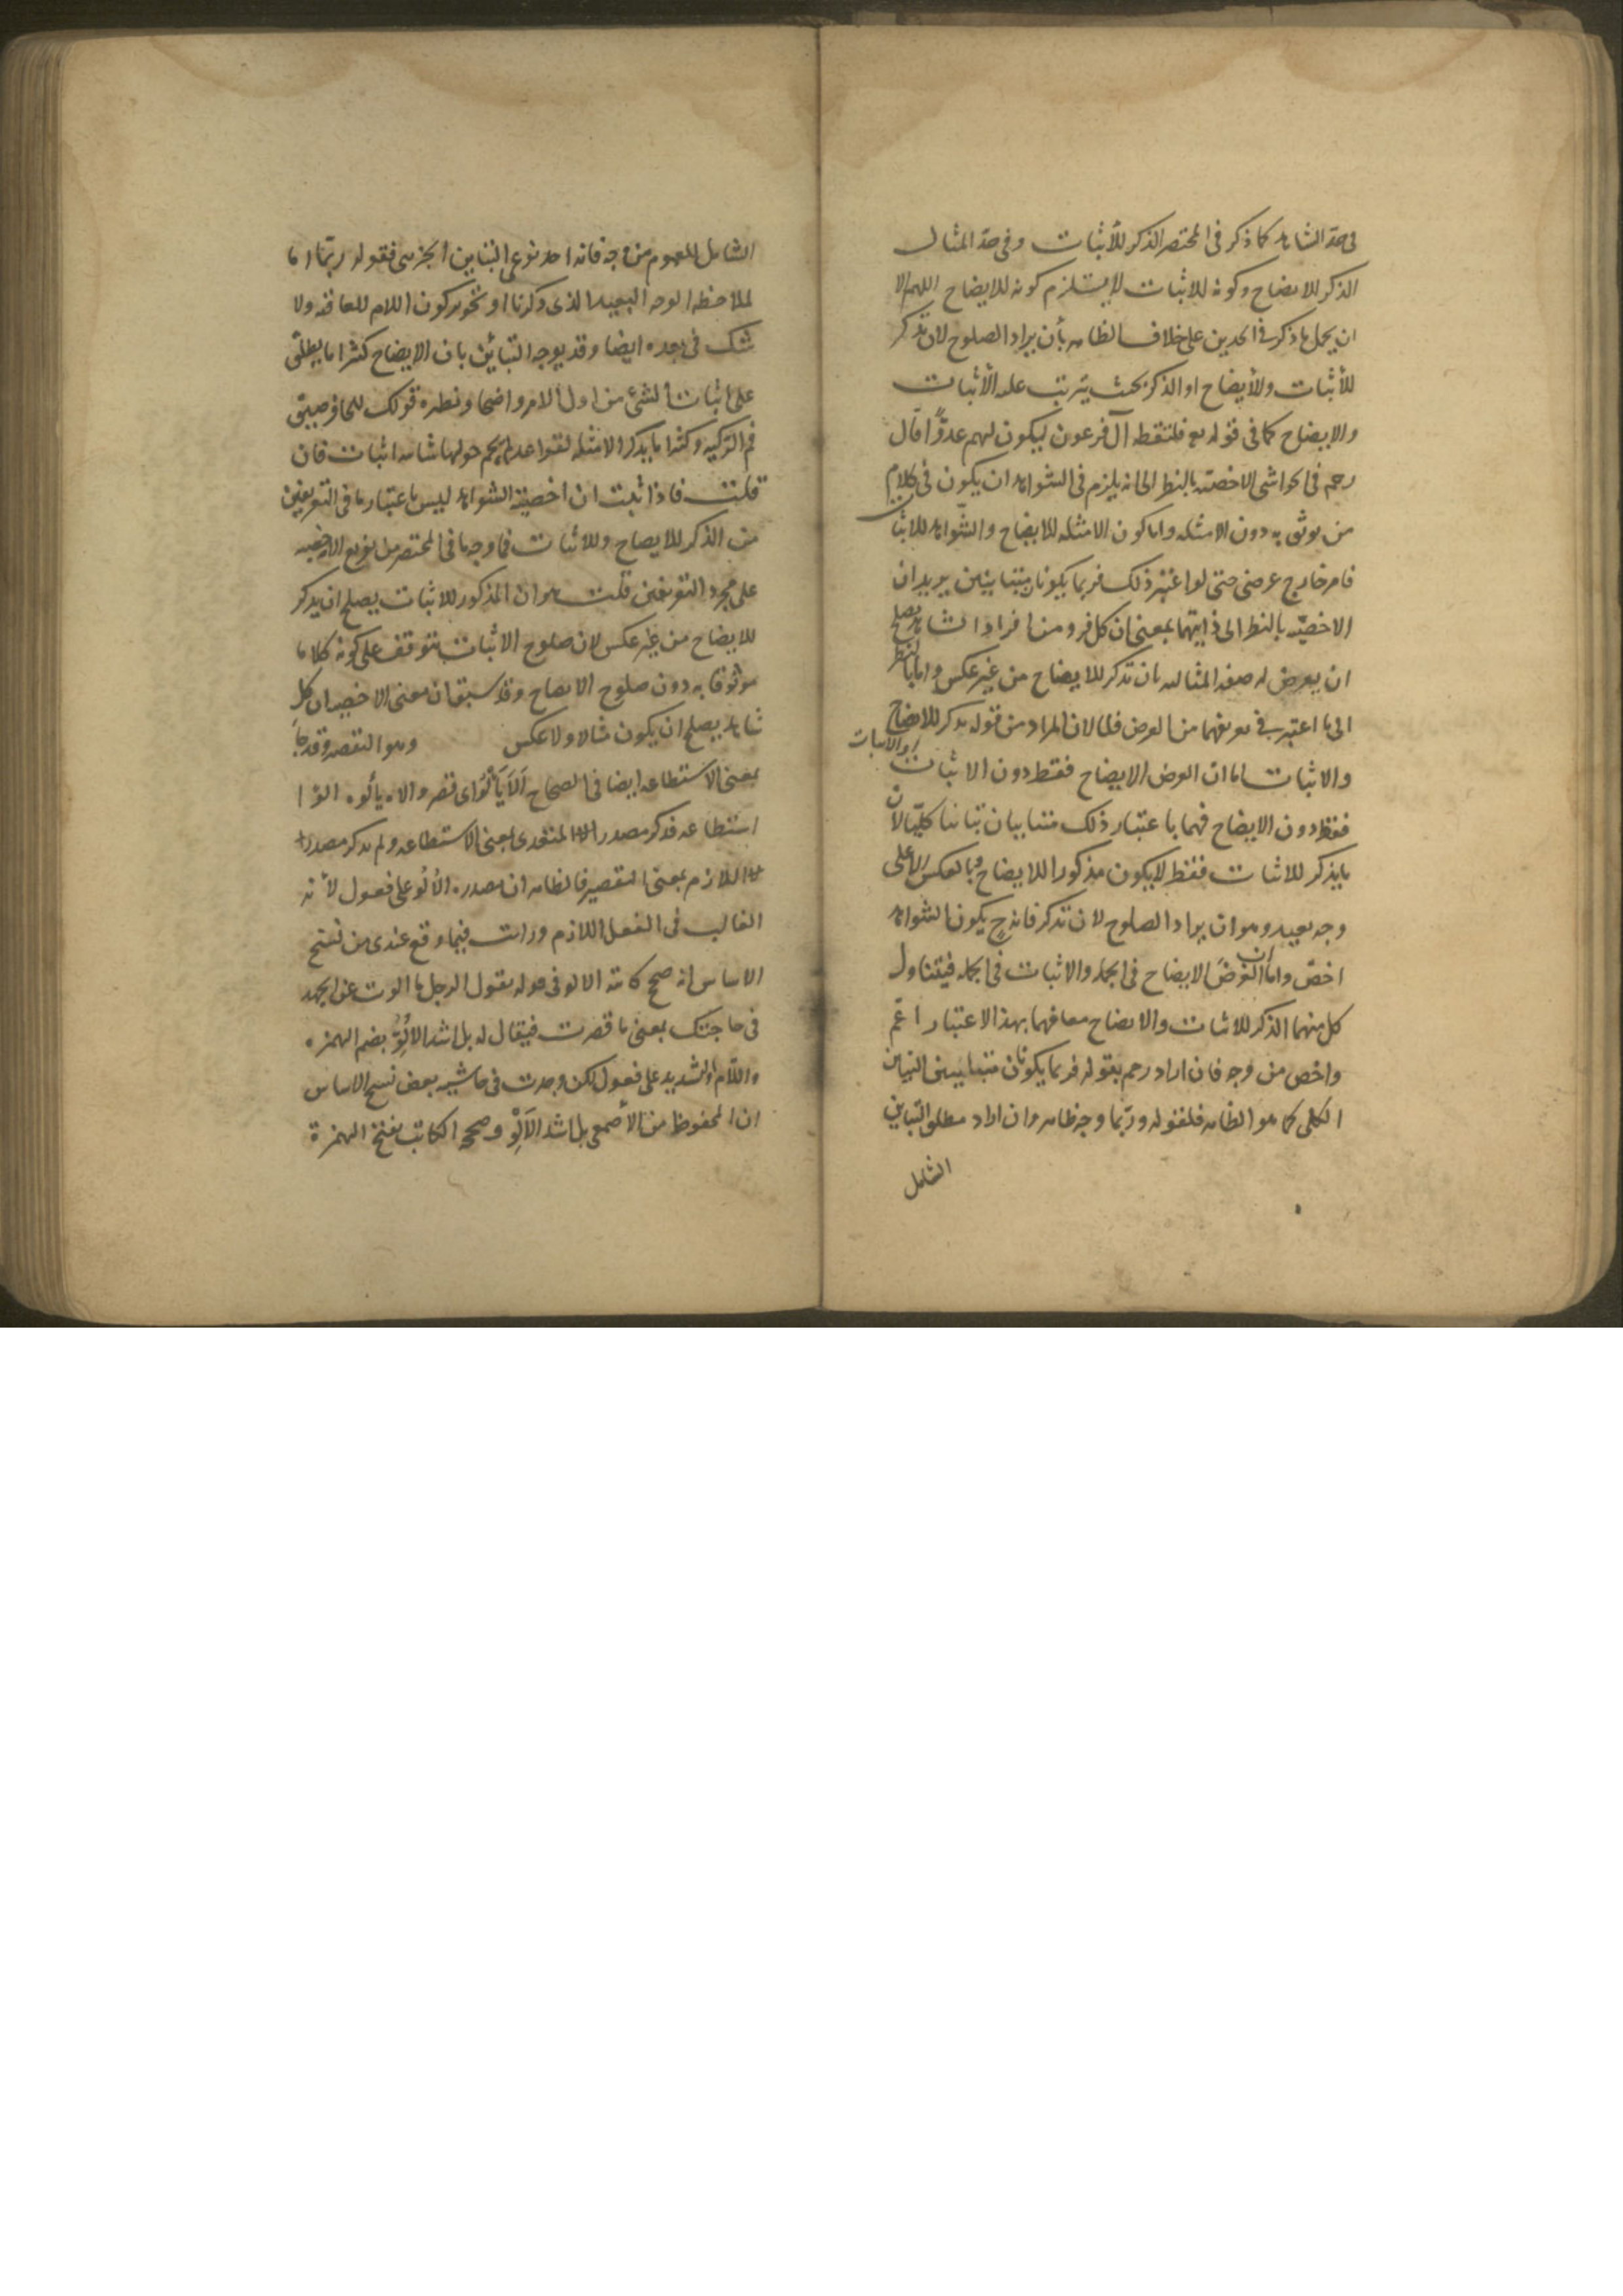 فى حدّ الشاهد كما ذكر فى المختصر الذكر للأثبات وفى حدّ المثال
الذكر للايضاح وكونه للاثبات لا يستلزم كونه للايضاح اللهم الا
ان يحمل ما ذكر فى الحدين على خلاف الظاهر بأن يراد الصلوح لان تذكر
للأثبات وللأيضاح او الذكر بحيث يترتب عليه الأثبات
والايضاح كما فى قوله تع فلتقطه آل فرعون ليكون لهم عدوًّا قال
رحمه فى الحواشى الاخصيّه بالنظر الى انه يلزم فى الشواهد ان يكون فى كلام
من يوثق به دون الامثله واما كون الامثله للايضاح والشّواهد للاثبا
ت
فامر خارج عرضى حتى لو اعتبر ذلك فربما يكونان متباينين يريد ان
الاخصيّه بالنظر الى ذاتيهما بمعنى ان كل فرد من افراد الشاهد يصلح
ان يعرض له صفه المثاليه بان تذكر للايضاح من غير عكس واما بالنظر
الى ما اعتبر فى تعريفهما من الغرض فلما لان المراد من قوله يذكر للايضاح
او الاثبات
والاثبات اما ان الغرض الايضاح فقط دون الاثبات
فقط دون الايضاح فهما باعتبار ذلك متباينان تباينا كليّا لان
ما يذكر للاثبات فقط لا يكون مذكورا للايضاح وبالعكس الا على
وجه بعيد وهو ان يراد الصلوح لان تذكر فانه ح يكون الشواهد
اخصّ واما ان الغرضَ الايضاح فى الجمله والاثبات فى الجمله فيتناول
كل منهما الذكر للاثبات والايضاح معا فهما بهذا الاعتبار اعمّ
واخص من وجه فان اراد رحمه بقوله فربما يكونان متباينين التباين
الكلى كما هو الظاهر فلقوله وربّما وجه ظاهر وان اراد مطلق التباين
الشامل
الشامل للعموم من وجه فانه احد نوعى التباين الجزئى فقوله ربّما اما
لملاحظه الوجه البعيد الذى ذكرنا او تجويز كون اللام للعاقبه ولا
شك فى بعده ايضا وقد يوجه التباين بان الايضاح كثيرا ما يطلق
على اثبات الشئ من اول الامر واضحا ونظيره قولك للحافر ضيق
فم الركيه وكثيرا ما يذكر الامثله لقواعد لم يحم حولها شائبه اثبات فان
قلت فاذا ثبت ان اخصيّة الشواهد ليس باعتبار ما فى التعريفين
من الذكر للايضاح وللاثبات فما وجه ما فى المختصر من تفريع الاخصيه
على مجرد التعريفين قلت هو ان المذكور للاثبات يصلح ان يذكر
للايضاح من غير عكس لان صلوح الاثبات يتوقف على كونه كلاما
موثوقا به دون صلوح الايضاح وقد سبق ان معنى الاخصيه ان كل
شاهد يصلح ان يكون مثالا ولا عكس وهو التقصير وقد جاء
بمعنى الاستطاعه ايضا فى الصحاح اَلاَ يَألُوُ اى قصر والاه يألوه الوًا
استطاعه فذكر مصدر الالا المتعدى بمعنى الاستطاعه ولم يذكر مصدر
الا اللازم بمعنى التقصير فالظاهر ان مصدره الأُلُوّ على فعول لأنه
الغالب فى الفعل اللازم ورايت فيما وقع عندى من نسخ
الاساس انه صحح كاتبه الالو فى قوله يقول الرجل ما الوت عن الجهد
فى حاجتك بمعنى ما قصرت فيقال له بل اشد الالُوُّ بضم الهمزه
واللّام والتشديد على فعول لكن وجدت فى حاشيه بعض نسخ الاساس
ان المحفوظ من الأصمعى بل اشد الاَلْوِ وصححه الكاتب بفتح الهمزة